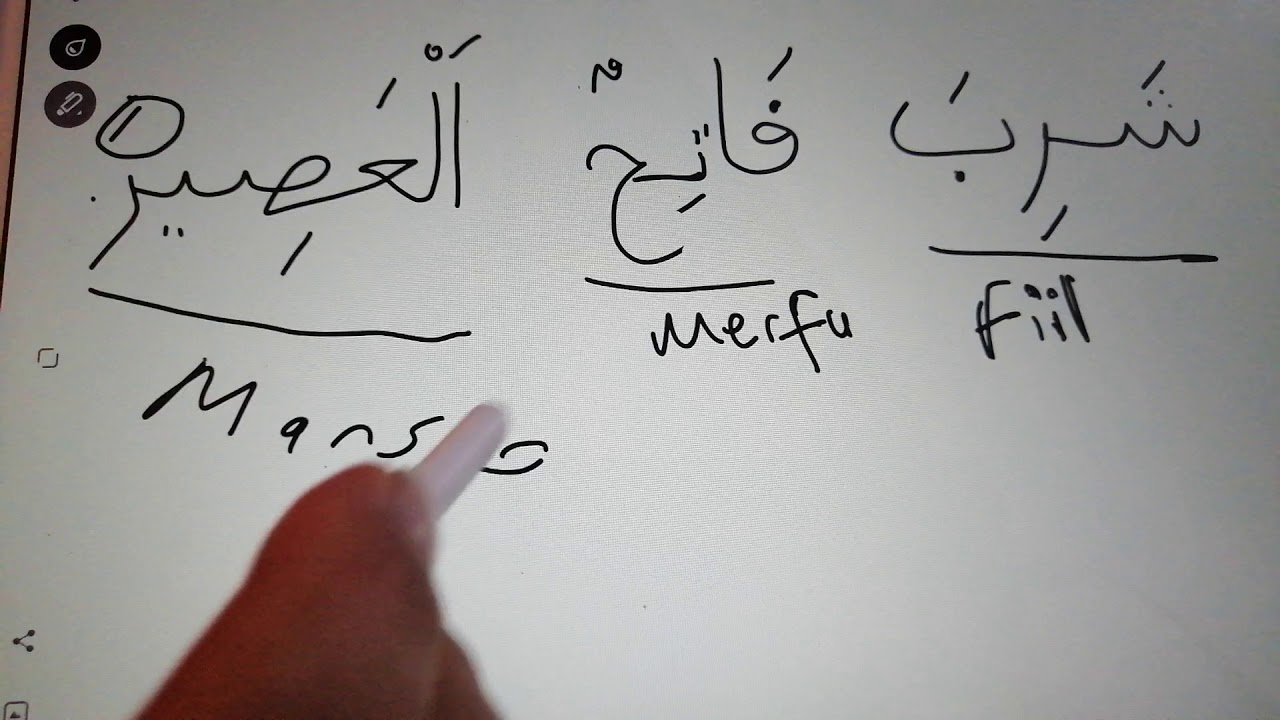 شَرِبَ فَاتِحٌ اَلْعَصِيرَ
Fiil Merfu Mansu